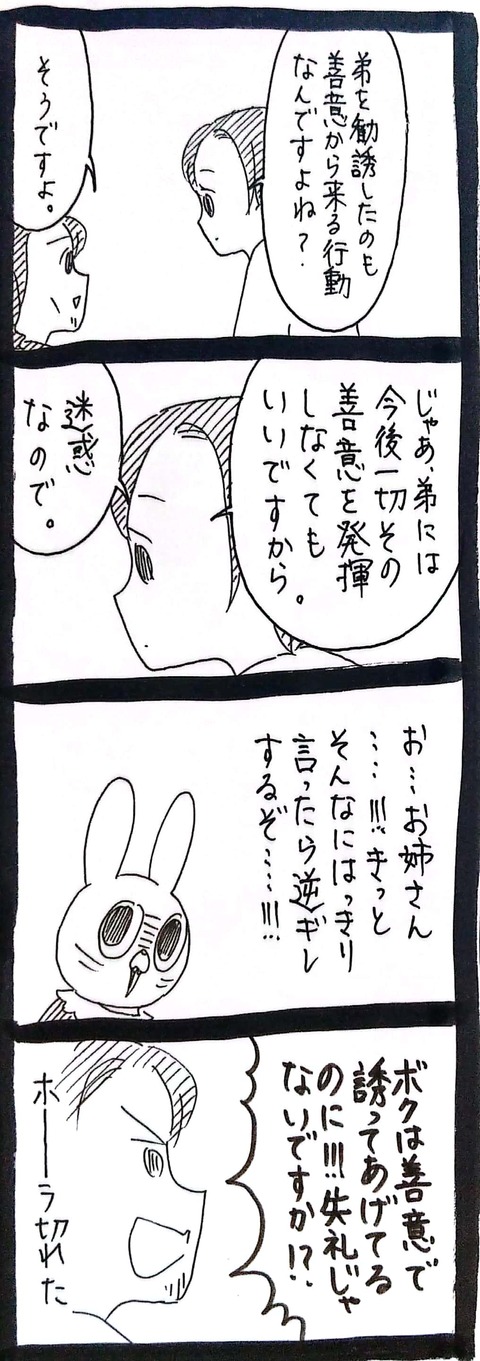 弟を勧誘したのも
善意から来る行動
なんですよね？
そうですよ。
じゃあ、弟には
今後一切その
善意を発揮
しなくても
いいですから。
迷惑
なので。
お…お姉さん
……!!!きっと
そんなにはっきり
言ったら逆ギレ
するぞ……!!!
ボクは善意で
誘ってあげてる
のに!!!失礼じゃ
ないですか!?
ホーーラ切れた